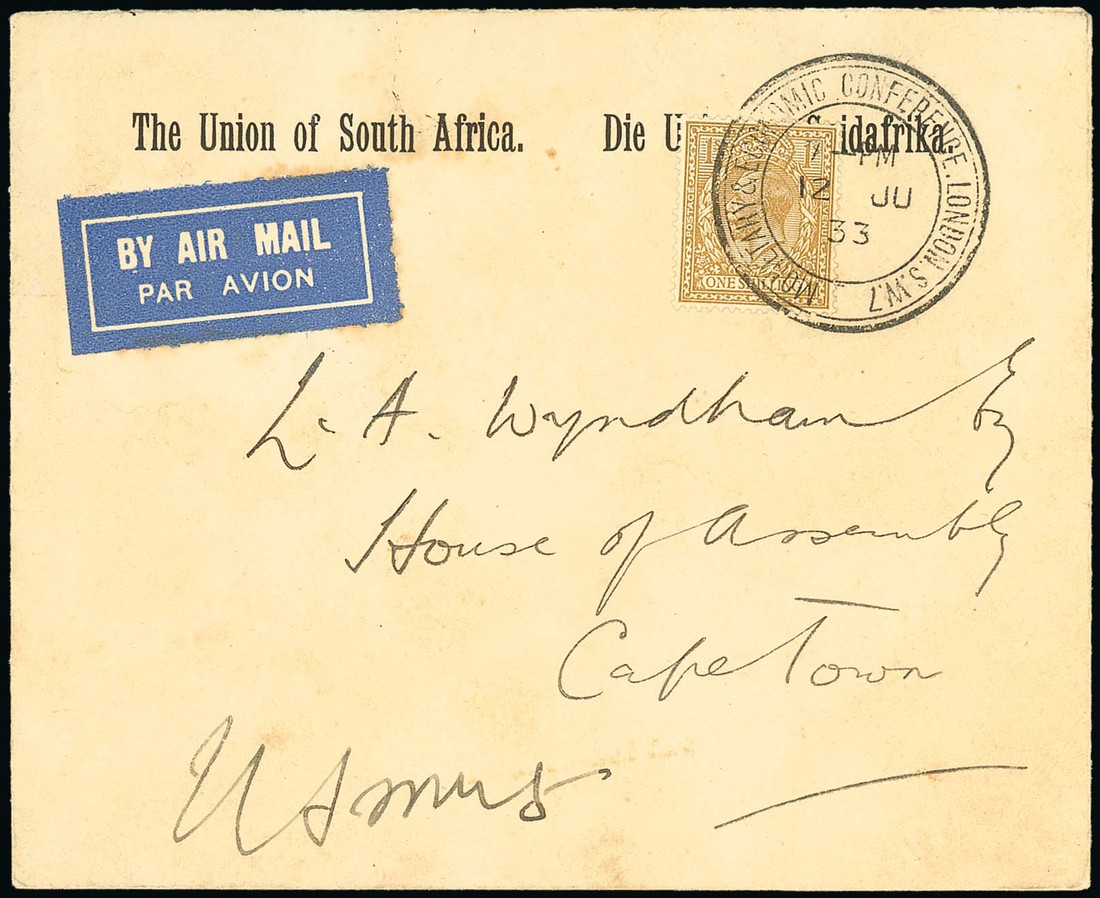 The Union of South Africa. Die U S idafrika.
BY AIR MAIL
PAR AVION
1 1
POSTAGE
ONE SHILLING
MONETARY & ECONOMIC CONFERENCE. LONDON. S.W.7
PM
12 JU
33
L. A. Wyndham
House of Assembly
Cape Town
Smuts